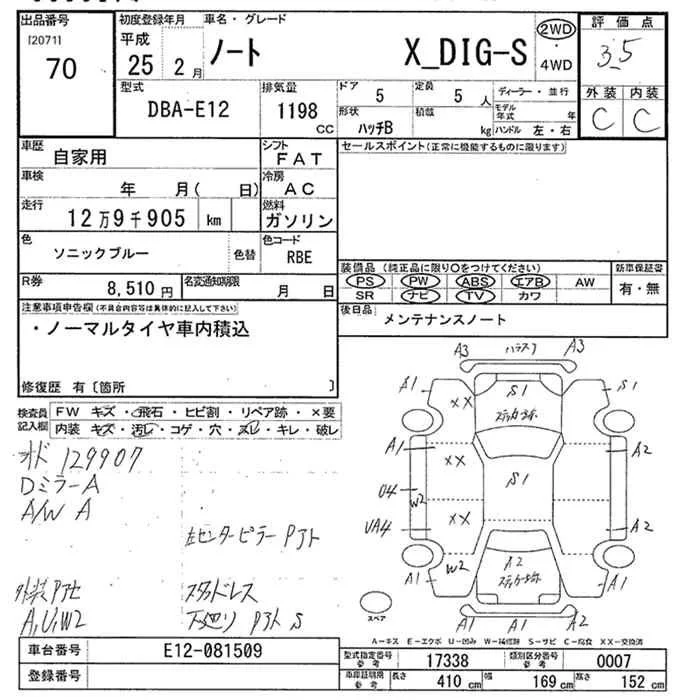 出品番号
[2071]
70
初度登録年月
平成
25 2月
車名・グレード
ノート X_DIG-S
2WD
・
4WD
評価点
3.5
外装 内装
C C
型式
DBA-E12
排気量
1198
CC
ドア
5
定員
5 人
ディーラー・並行
モデル年式 年
形状
ハッチB
積載
kg
ハンドル 左・右
車歴
自家用
シフト
FAT
セールスポイント(正常に機能するものに限ります)
車検
年 月( 日)
冷房
AC
走行
12万9千905 km
燃料
ガソリン
色
ソニックブルー
色替
色コード
RBE
装備品 (純正品に限り〇をつけてください)
新車保証書
PS PW ABS エアB AW
有・無
SR ナビ TV カワ
R券
8,510円
名変通知期限
月 日
後日品
メンテナンスノート
注意事項申告欄(不具合内容等は具体的に記入して下さい)
・ノーマルタイヤ車内積込
修復歴 有〔箇所 〕
検査員記入欄
FW キズ・飛石・ヒビ割・リペア跡・×要
内装 キズ・汚レ・コゲ・穴・ヌレ・キレ・破レ
129907
DミラーA
A/W A
左センターピラー
スタッドレス
A,U,W2
下廻り S
A3 A3
A1 S1 S1
XX
A1 XX S1 A2
U4 W2
UA4 XX A2
W2 A2
A1 A1
A1 A1 A2
スペア
A-キズ E-エクボ U-凹み W-補修跡 S-サビ C-腐食 XX-交換済
車台番号
E12-081509
登録番号
型式指定番号
参考
17338
類別区分番号
参考
0007
車庫証明用
参考
長さ
410 cm
幅
169 cm
高さ
152 cm